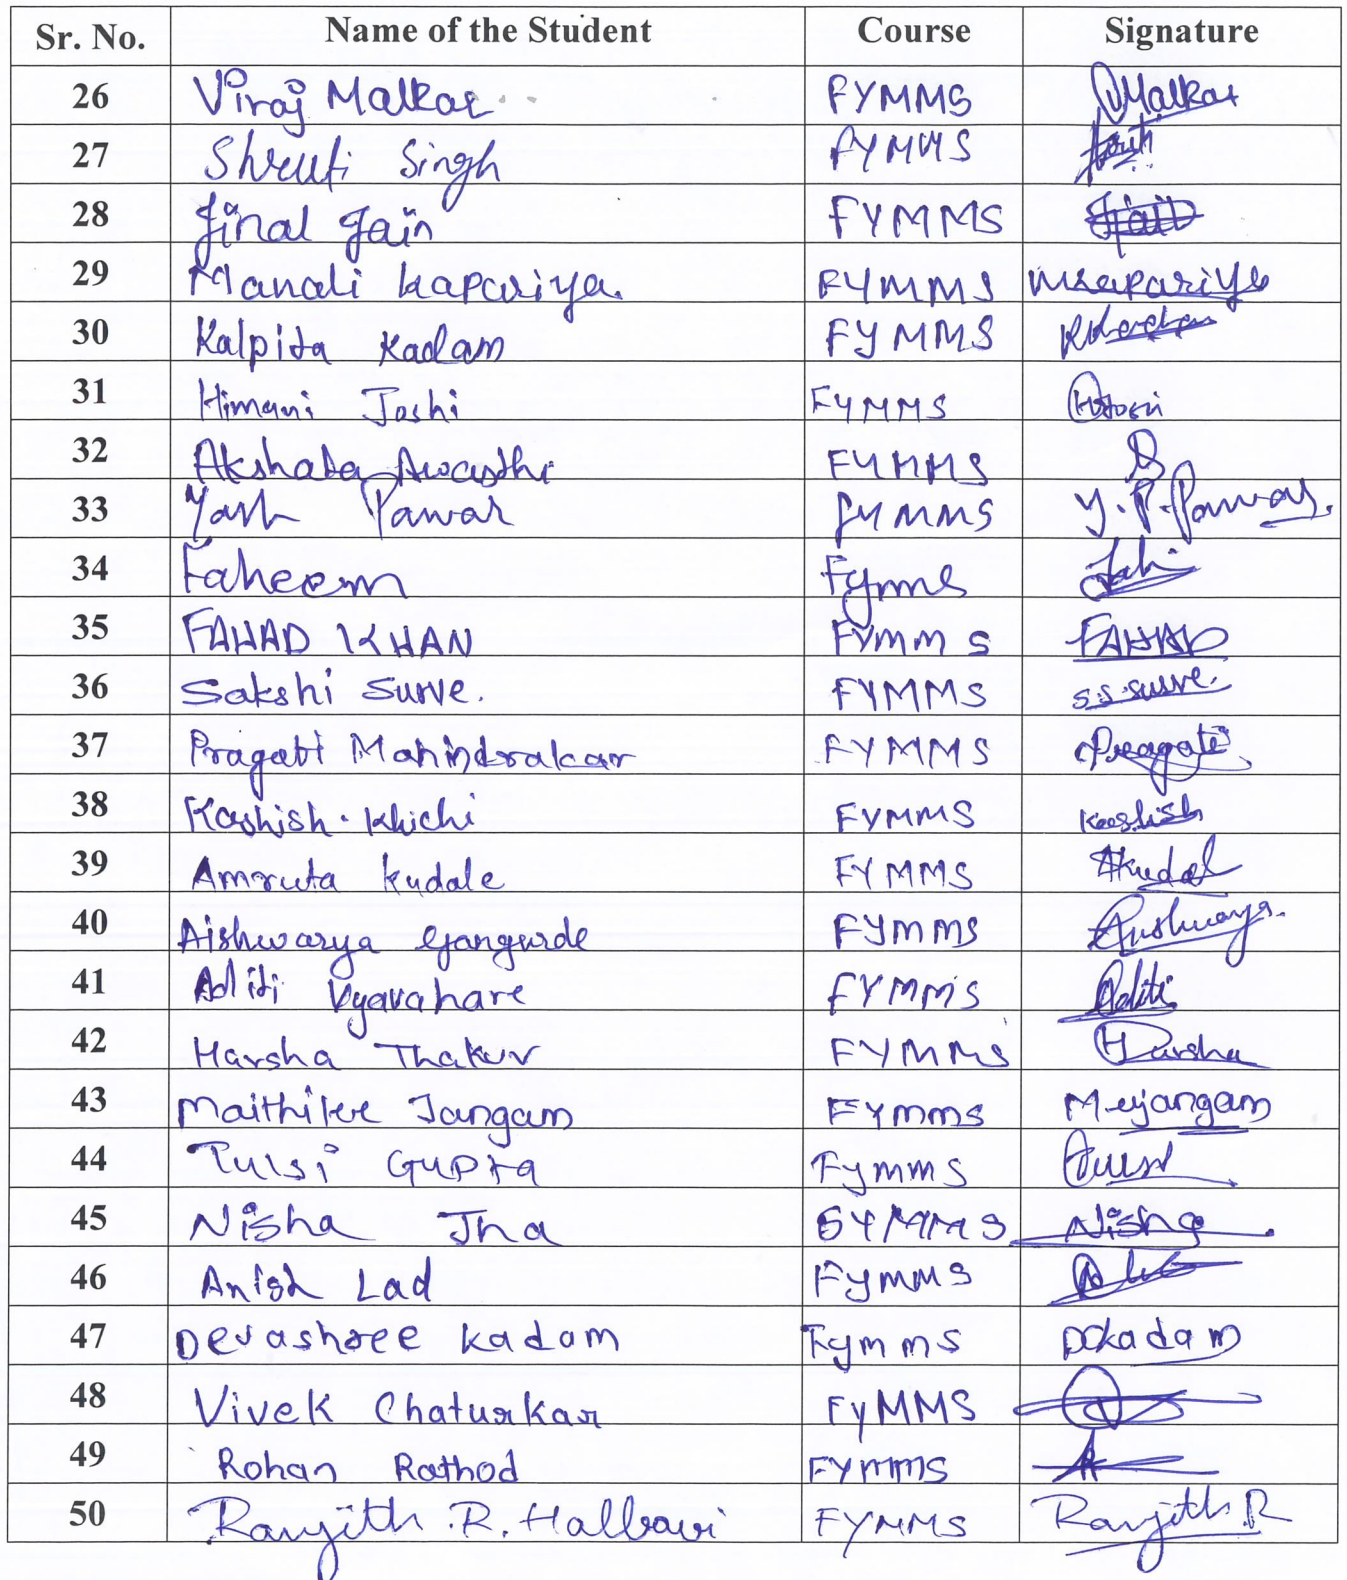 Sr. No. Name of the Student Course Signature
26 Viraj Malkar FYMMS VMalkar
27 Shruti Singh FYMMS
28 Jinal Jain FYMMS Jain
29 Manali Kapariya. FYMMS mkapariya
30 Kalpita Kadam FYMMS
31 Himani Joshi FYMMS HJoshi
32 Akshata Awasthi FYMMS
33 Yash Pawar FYMMS Y.P.Pawar.
34 Faheem Fymms
35 FAHAD KHAN FYmms FAHAD
36 Sakshi Surve. FYMMS S.S.Surve.
37 Pragati Mahindrakar FYMMS Pragati
38 Kashish. Khichi FYMMS Kashish
39 Amruta Kudale FYMMS AKudal
40 Aishwarya Gangurde FYmms
41 Aditi Vyavahare FYMMS Aditi
42 Harsha Thakur FYMMS Harsha
43 Maithilee Jangam FYmms
44 Tulsi Gupta Fymms
45 Nisha Jha SYMMS Nisha
46 Anish Lad FymmS
47 Devashree Kadam Fymms Dkadam
48 Vivek Chaturkar FyMMS
49 Rohan Rathod FYMMS
50 Ranjith .R. Halbavi FYMMS Ranjith.R